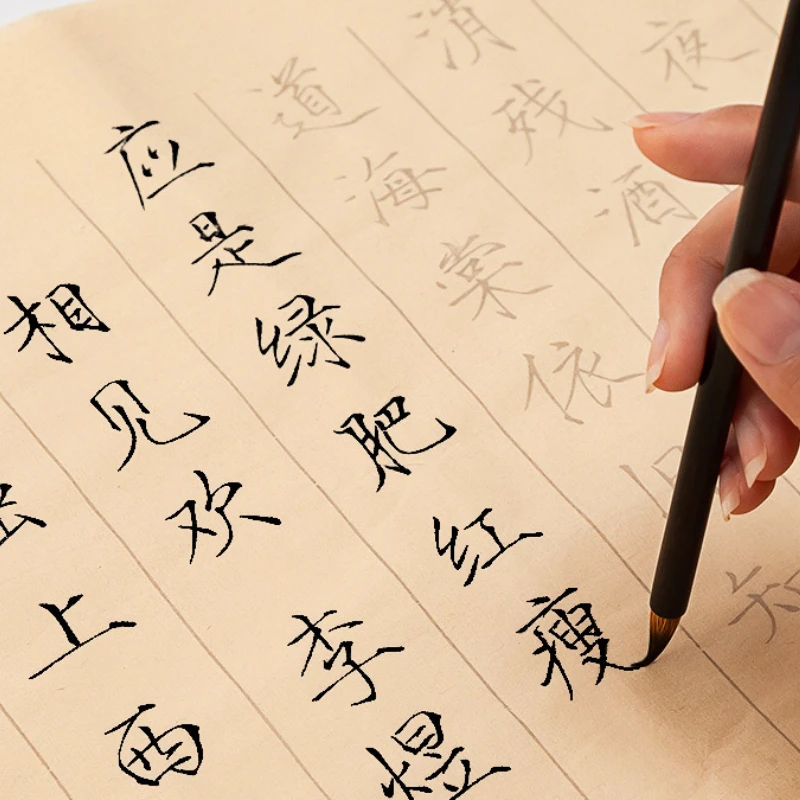 夜
消残酒
道海棠依旧知
应是绿肥红瘦
相见欢 李煜
上西